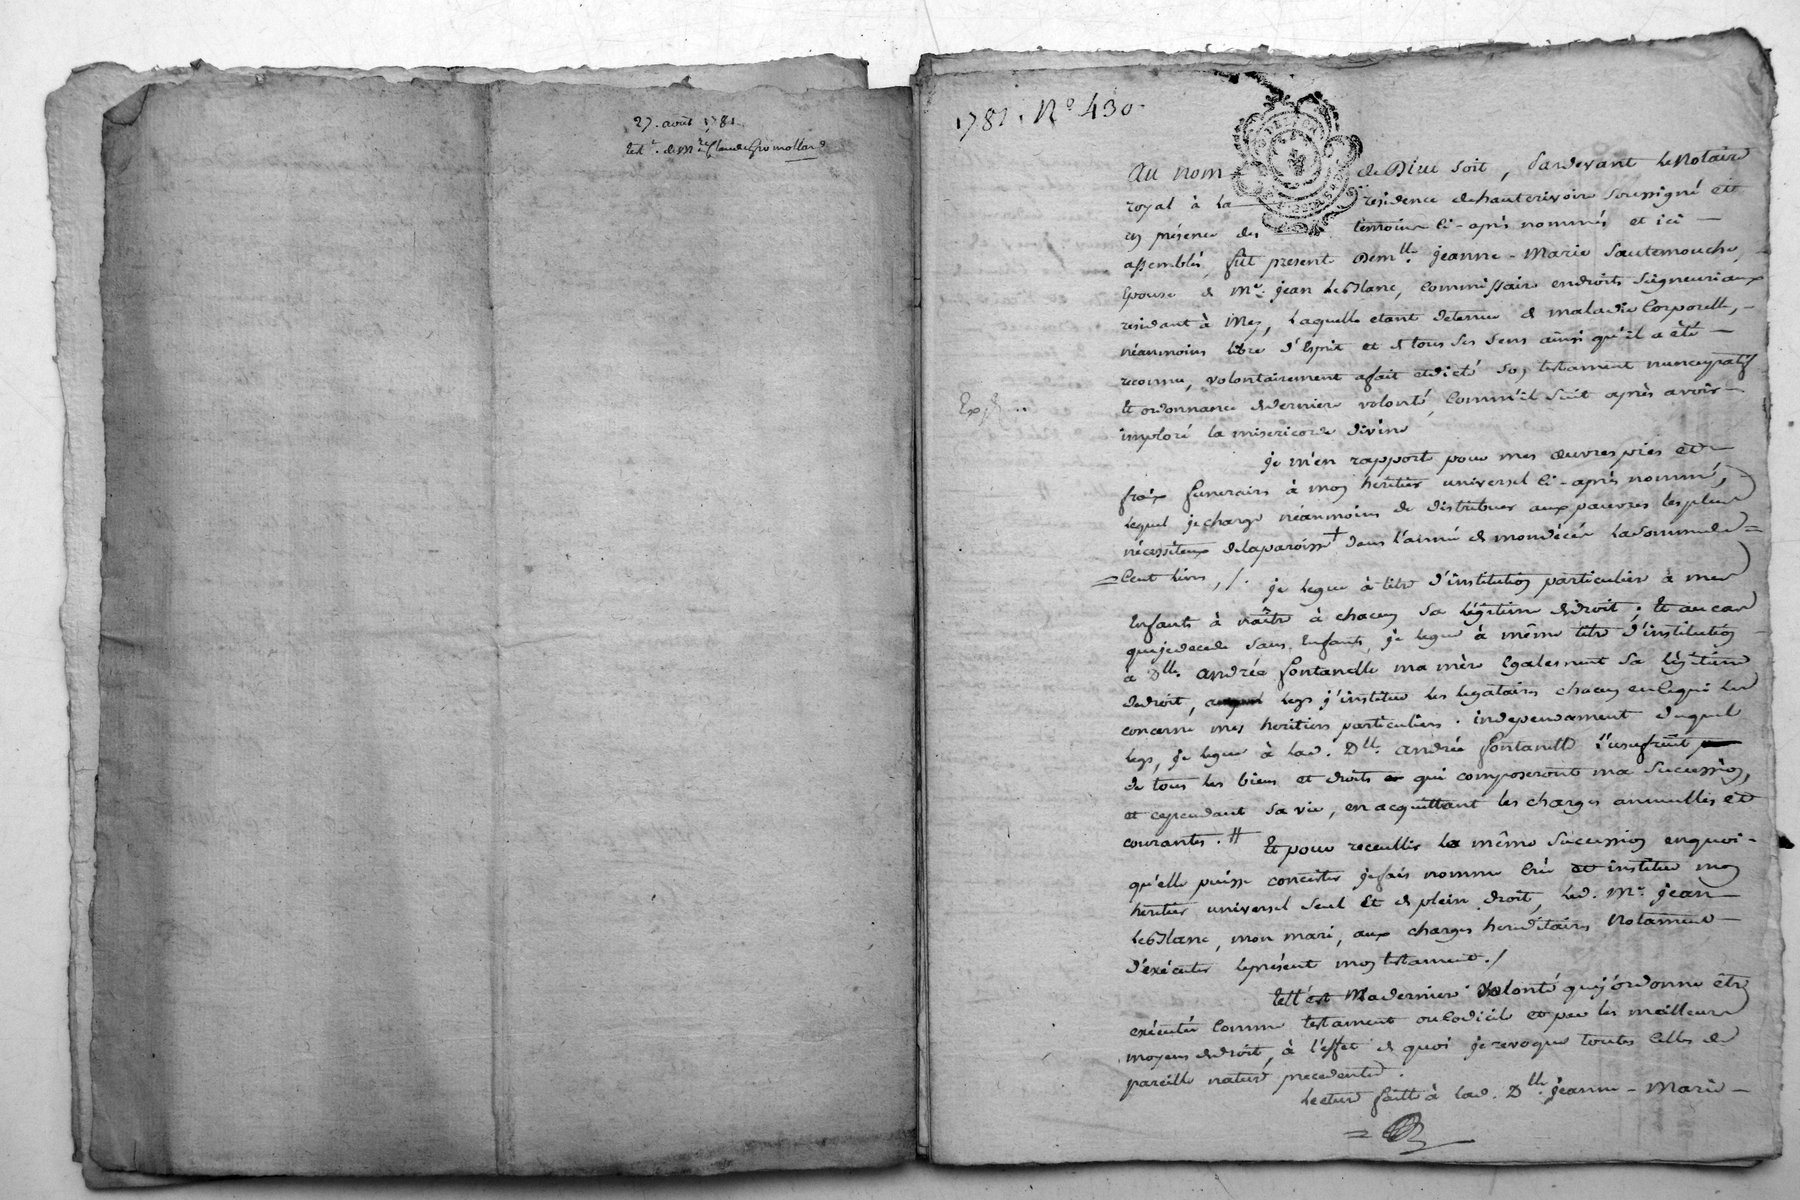 27. août 1781.
test.t de Mre Claude Grimollard
1781. No 430.
Au nom de Dieu soit, Pardevant le Notaire
royal à la résidence de hauterivoire soussigné et
en présence des temoins ci-après nommés et ici
assemblés, fut presente Demlle. jeanne-Marie Sautemouche,
Epouse de Me. jean LeBlanc, Commissaire endroits Seigneuriaux
residant à Mes, Laquelle etant detenue de maladie Corporelle,
néanmoins libre d'Esprit et de tous ses sens ainsi qu'il a eté
reconnu, volontairement a fait et dicté son testament nuncupatif
Et ordonnance de derniere volonté, Comm'il suit après avoir
Exp.
imploré la misericorde divine
je m'en rapporte pour mes œuvres pies et
frais funeraires à mon heritier universel ci-après nommé,
lequel je charge néanmoins de distribuer aux pauvres les plus
nécessiteux de la paroisse + dans l'année de mon décès la somme de =
= Cent livres, /. je legue à titre d'institution particuliere à mes
Enfants à naître à chacun sa légitime de droit ; Et au cas
que je decede sans Enfants, je legue à même titre d'institution
à Dlle. andrée fontanelle ma mère Egalement sa légitime
de droit, legs j'institue les legataires chacun en ce qui les
concerne mes heritiers particuliers. independament duquel
legs, je legue à lad. Dlle. andrée fontanelle l'usufruit
de tous les biens et droits qui composeront ma succession,
et cependant sa vie, en acquittant les charges annuelles et
courantes. # Et pour receullir la même succession en quoi-
qu'elle puisse concister je fais nomme Crée et institue mon
heritier universel seul Et de plein droit, led. Me. jean
LeBlanc, mon mari, aux charges hereditaires Notament
d'exécuter le présent mon testament. /
Tell'est Ma derniere Volonté que j'ordonne être
exécutée Comme testament ou Codicile et par les meilleurs
moyens de droit, à l'effet de quoi je revoque toutes celles de
pareille nature precedentes.
Lecture faitte à lad. Dlle. jeanne-Marie